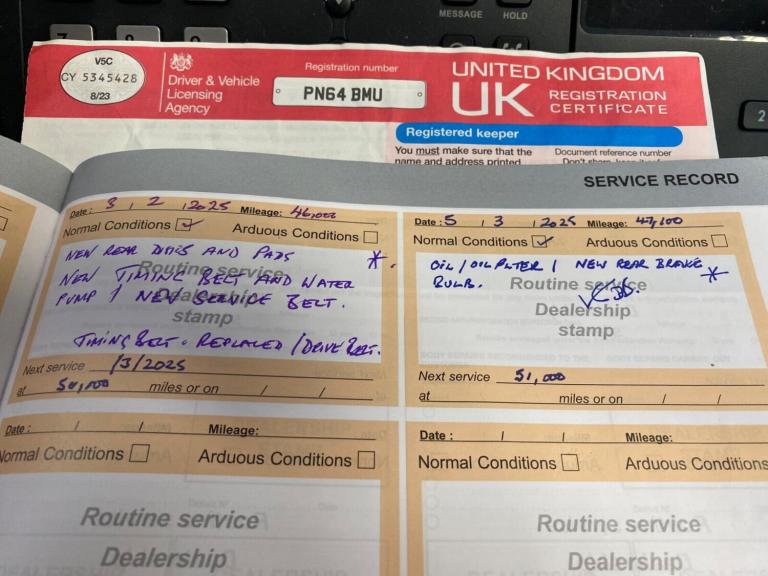 MESSAGE HOLD
V5C
CY 5345428
8/23
Driver & Vehicle
Licensing
Agency
Registration number
PN64 BMU
UNITED KINGDOM
UK REGISTRATION
CERTIFICATE
Registered keeper
You must make sure that the
name and address printed
Document reference number
2
SERVICE RECORD
Date: 3 / 2 / 2025 Mileage: 46,000
Normal Conditions Arduous Conditions
NEW REAR DISCS AND PADS *.
NEW TIMING BELT AND WATER
PUMP / NEW SERVICE BELT.
Routine service
Dealership
stamp
TIMING BELT - REPLACED / DRIVE BELT.
Next service /3/2025
at 50,000 miles or on / /
Date: 5 / 3 / 2025 Mileage: 47,100
Normal Conditions Arduous Conditions
OIL / OIL FILTER / NEW REAR BRAKE
BULB. *
Routine service
Dealership
stamp
Next service 51,000
at miles or on / /
Date: / / Mileage:
Normal Conditions Arduous Conditions
Routine service
Dealership
Date: / / Mileage:
Normal Conditions Arduous Conditions
Routine service
Dealership